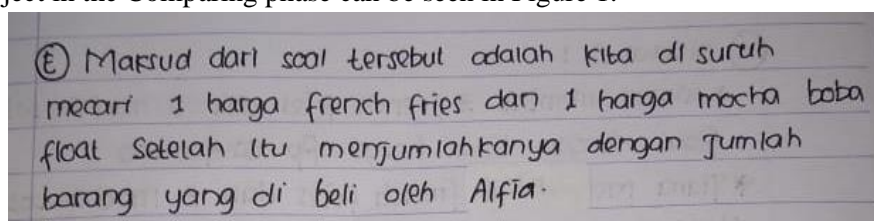 ject in the Comparing phase can be seen in Figure 1.
Ⓔ Maksud dari soal tersebut adalah kita di suruh
mecari 1 harga french fries dan 1 harga mocha boba
float Setelah itu menjumlahkanya dengan Jumlah
barang yang di beli oleh Alfia.